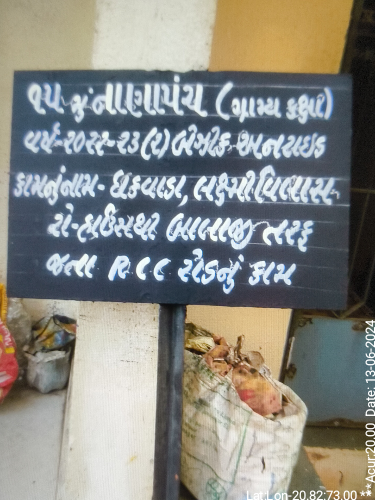 ૧૫ મું નાણાપંચ (ગ્રામ્ય કક્ષા)
વર્ષ-૨૦૨૨-૨૩ (૬) બેઝીક-અનટાઇડ
કામનું નામ- ધકવાડા, લક્ષ્મીવિલાસ-
રો-હાઉસથી બાલાજી તરફ
જતા RCC રોડનું કામ
Lat Lon-20.82:73.00 **Acur:20.00 Date: 13-06:2024